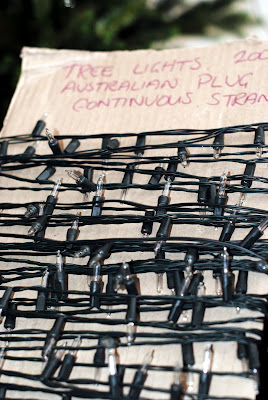 TREE LIGHTS. 200
AUSTRALIAN PLUG
CONTINUOUS STRAN